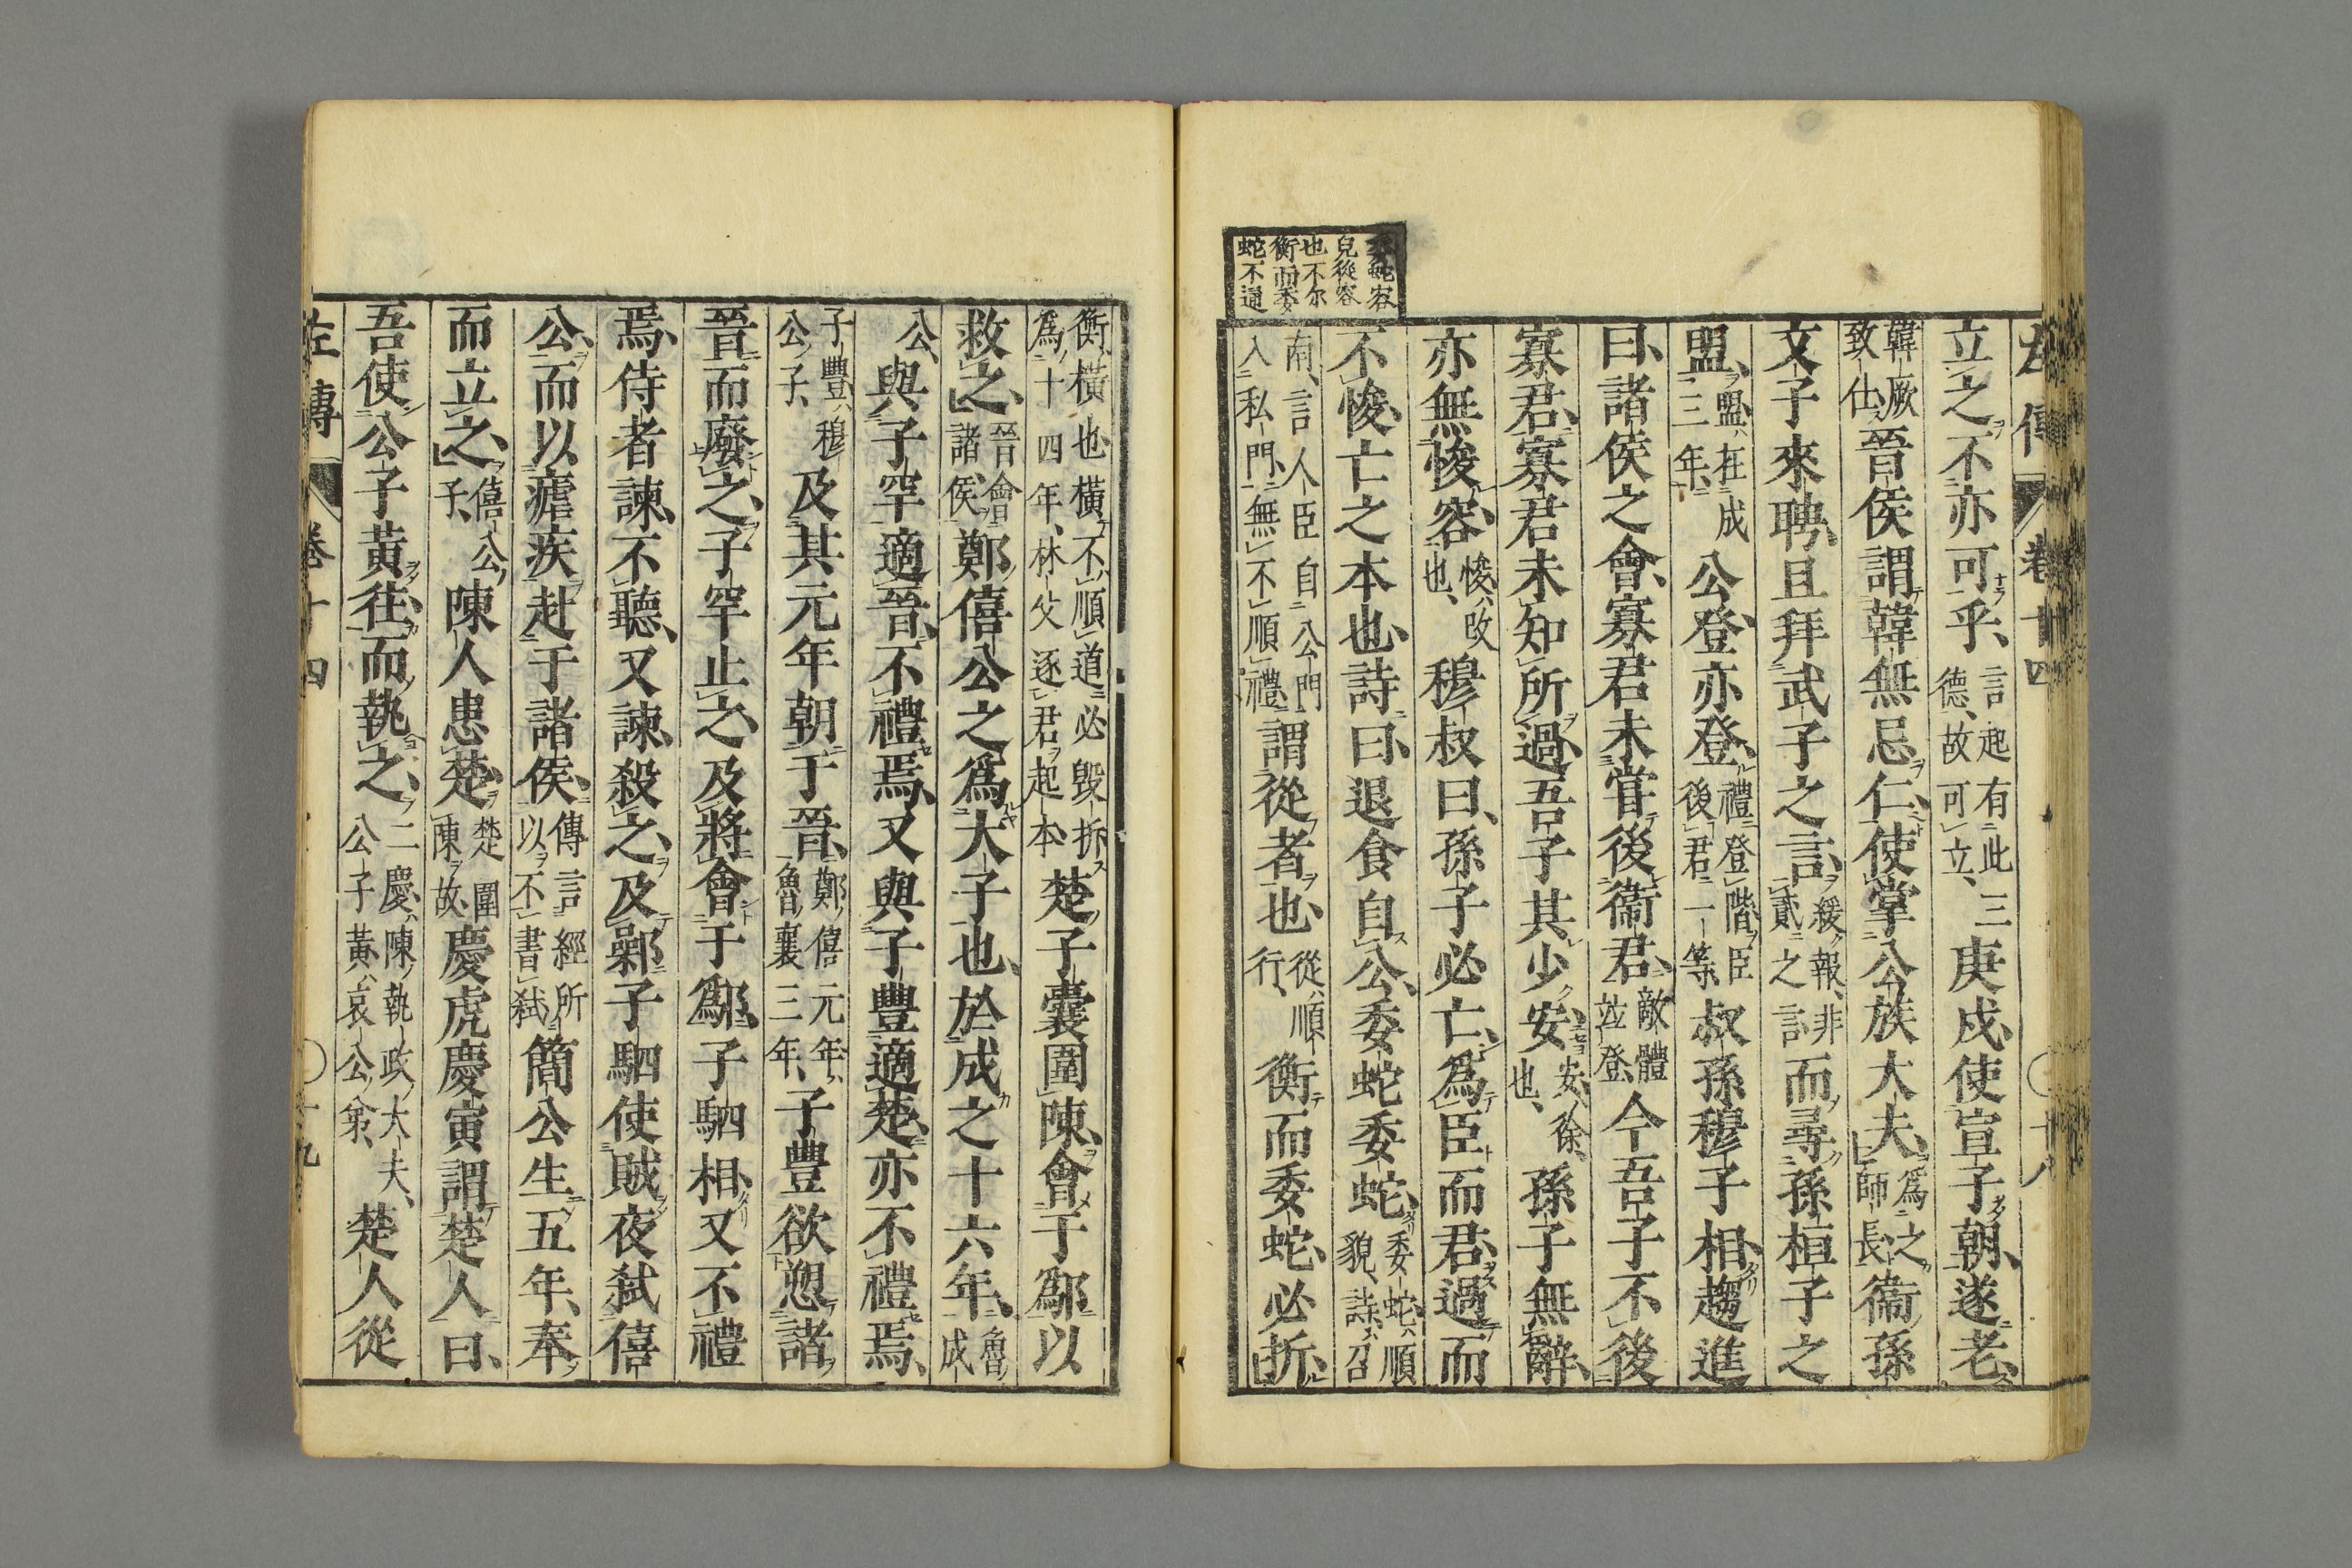 左傳 卷十四 ○十八
立之不亦可乎言起有此三德故可立庚戌使宣子朝遂老
韓厥致仕晉侯謂韓無忌仁使掌公族大夫爲之師長衞孫
文子來聘且拜武子之言緩報非貳之言而尋孫桓子之
盟盟在成三年公登亦登禮登階臣後君一等叔孫穆子相趨進
曰諸侯之會寡君未甞後衞君敵體竝登今吾子不後
寡君寡君未知所過吾子其少安安徐也孫子無辭
亦無悛容悛改也穆叔曰孫子必亡爲臣而君過而
不悛亡之本也詩曰退食自公委蛇委蛇委蛇順貌詩召
南言人臣自公門入私門無不順禮謂從者也從順行衡而委蛇必折
委蛇容
皃從容
也不尔
衡而委
蛇不通
衡橫也橫不順道必毀折爲十四年林父逐君起本楚子囊圍陳會于鄬以
救之晉會諸侯鄭僖公之爲大子也於成之十六年魯成
公與子罕適晉不禮焉又與子豐適楚亦不禮焉
子豐穆公子及其元年朝于晉鄭僖元年魯襄三年子豐欲愬諸
晉而廢之子罕止之及將會于鄬子駟相又不禮
焉侍者諫不聽又諫殺之及鄵子駟使賊夜弒僖
公而以瘧疾赴于諸侯傳言經所以不書弒簡公生五年奉
而立之僖公子陳人患楚楚圍陳故慶虎慶寅謂楚人曰
吾使公子黃往而執之二慶陳執政大夫公子黃哀公弟楚人從
左傳 卷十四 ○十九